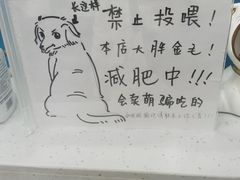 长这样
禁止投喂！
本店大胖金毛！
减肥中!!!
会卖萌骗吃的